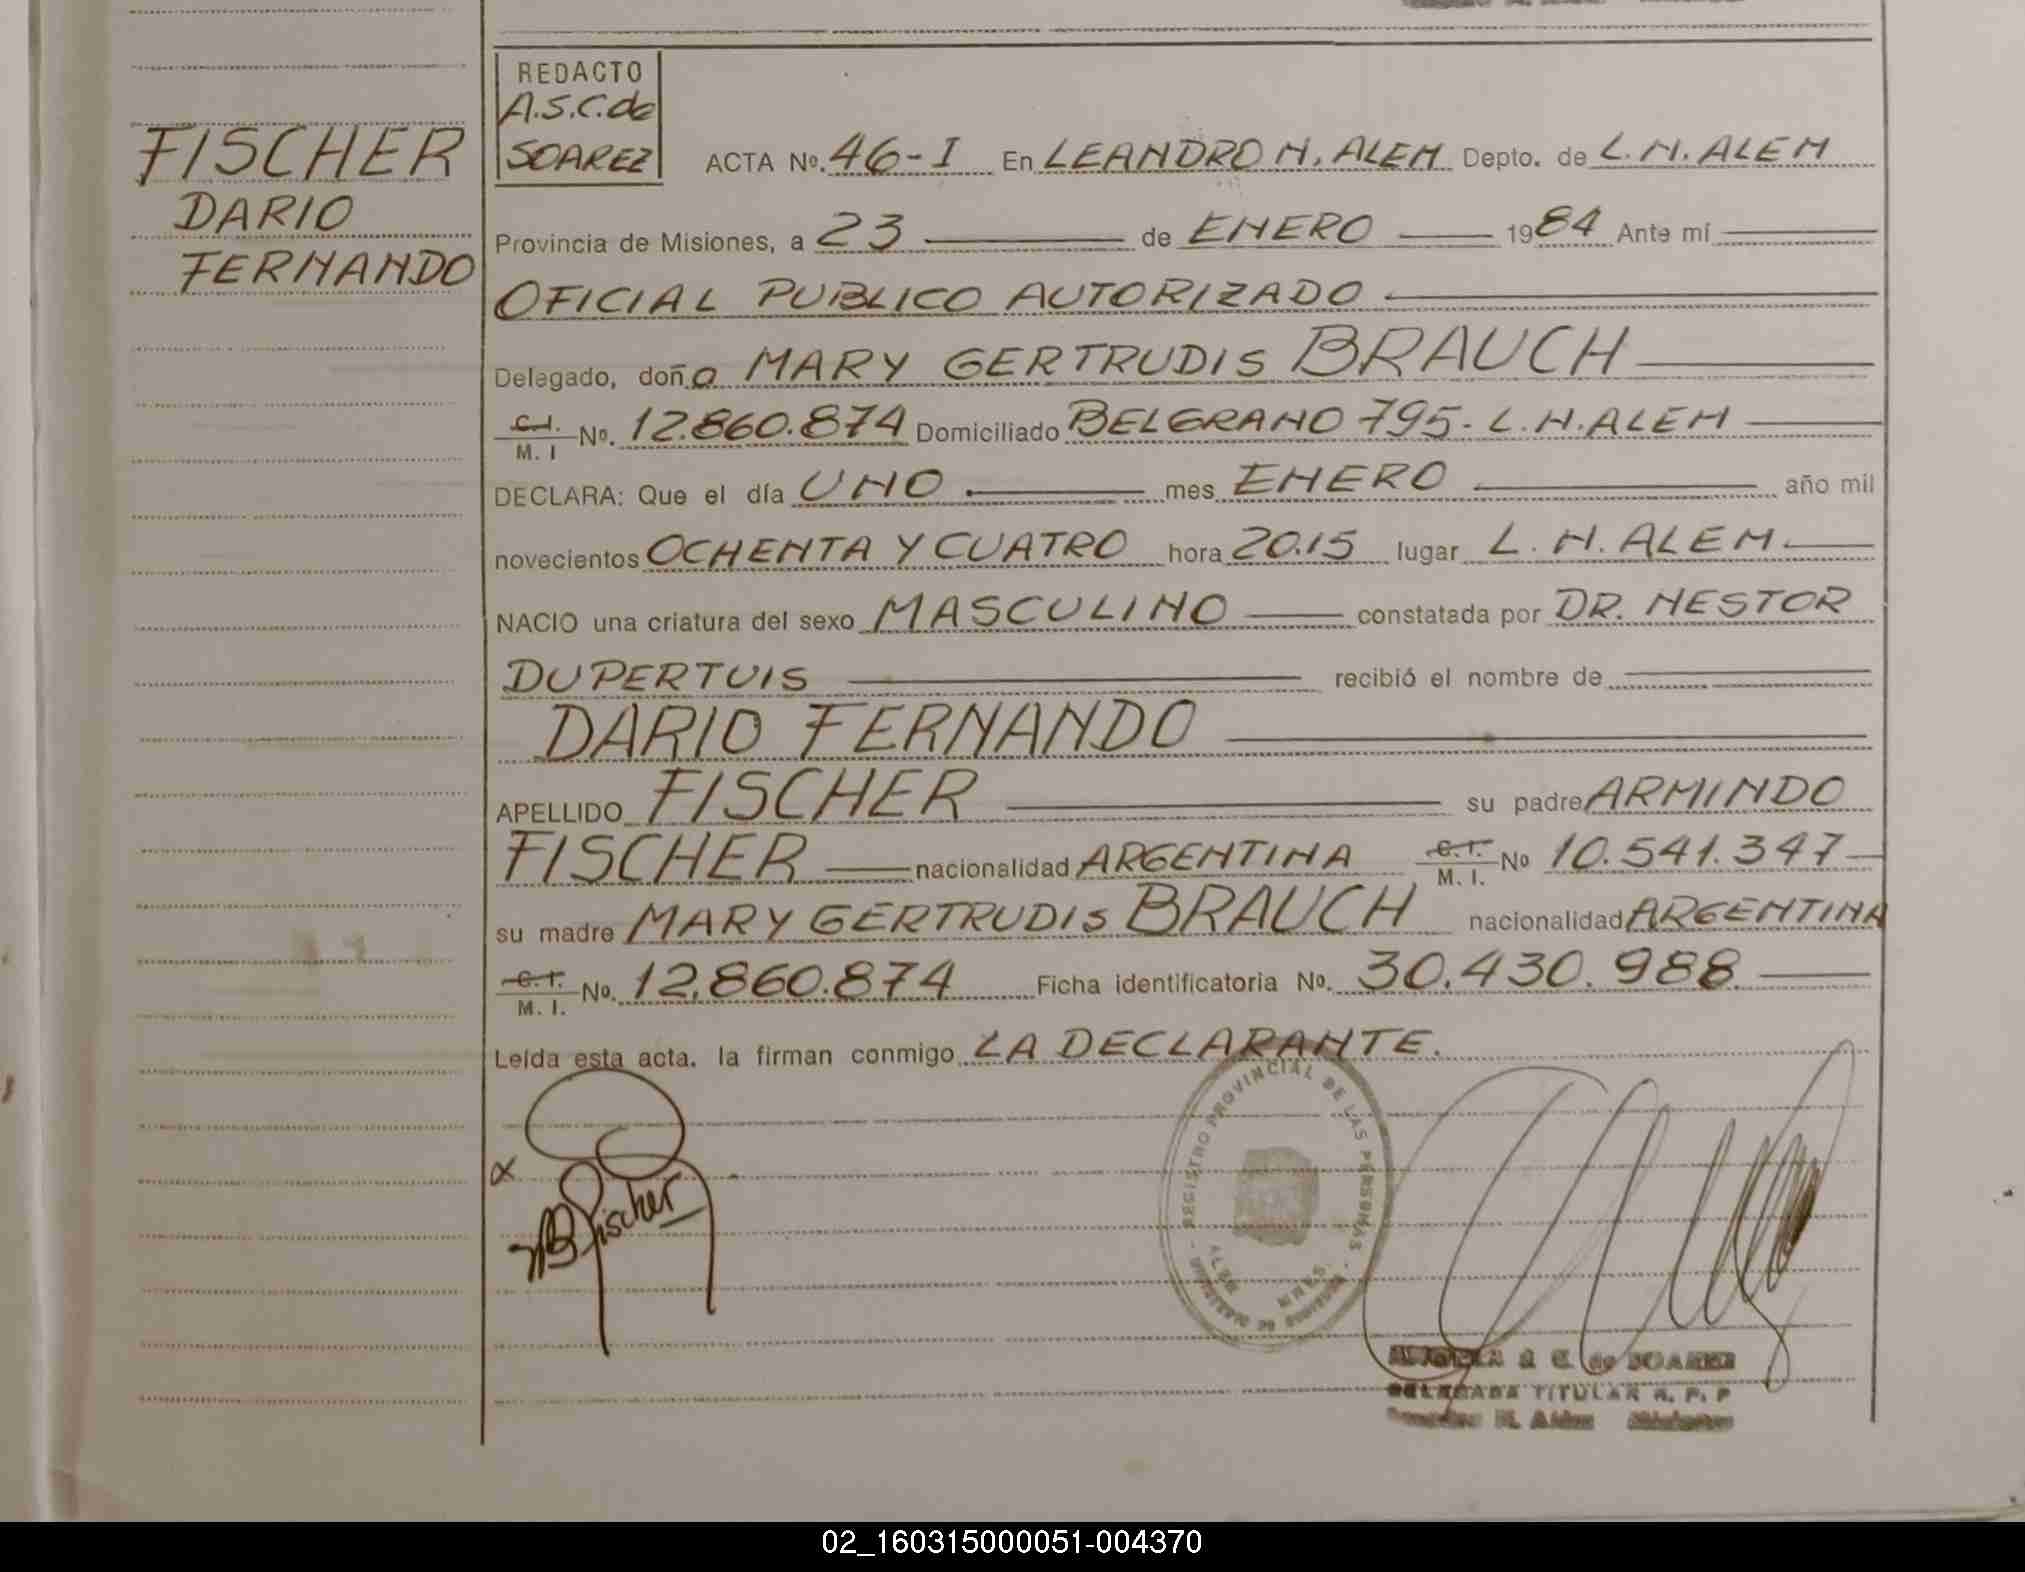 FISCHER
DARIO
FERNANDO
REDACTO
A.S.C. de
SOAREZ
ACTA Nº. 46-I En LEANDRO N. ALEM Depto. de L.N. ALEM
Provincia de Misiones, a 23 de ENERO 1984 Ante mí
OFICIAL PUBLICO AUTORIZADO
Delegado, doña MARY GERTRUDIS BRAUCH
C.I.
M. I Nº. 12.860.874 Domiciliado BELGRANO 795 - L.N. ALEM
DECLARA: Que el día UNO mes ENERO año mil
novecientos OCHENTA Y CUATRO hora 20.15 lugar L. N. ALEM.
NACIO una criatura del sexo MASCULINO constatada por DR. NESTOR
DUPERTUIS recibió el nombre de
DARIO FERNANDO
APELLIDO FISCHER su padre ARMINDO
FISCHER nacionalidad ARGENTINA C.I. M. I. Nº 10.541.347
su madre MARY GERTRUDIS BRAUCH nacionalidad ARGENTINA
C.I.
M. I. Nº. 12.860.874 Ficha identificatoria Nº. 30.430.988
Leída esta acta. la firman conmigo LA DECLARANTE.
x
MBFischer
REGISTRO PROVINCIAL DE LAS PERSONAS
MINISTERIO DE GOBIERNO
ALEM MNES.
S. C. de SOAREZ
DELEGADA TITULAR R. P. P
Leandro N. Alem Misiones
02_160315000051-004370